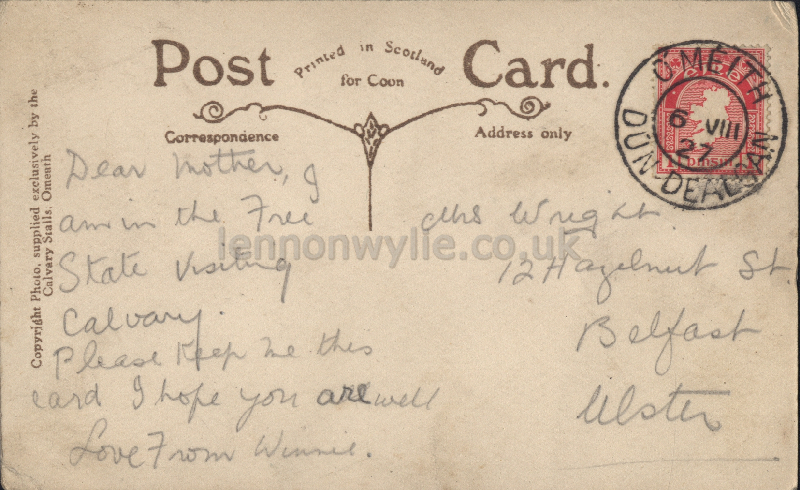 Post Card.
Printed in Scotland
for Coon
Correspondence
Address only
Copyright Photo, supplied exclusively by the
Calvary Stalls, Omeath
Dear Mother, I
am in the Free
State visiting
Calvary.
Please Keep me this
card I hope you are well
Love From Winnie.
Mrs Wright.
12 Hazelnut St
Belfast
Ulster
Ó MÉITH
6 VIII
27
DÚN-DEALGAN
éire
lennonwylie.co.uk